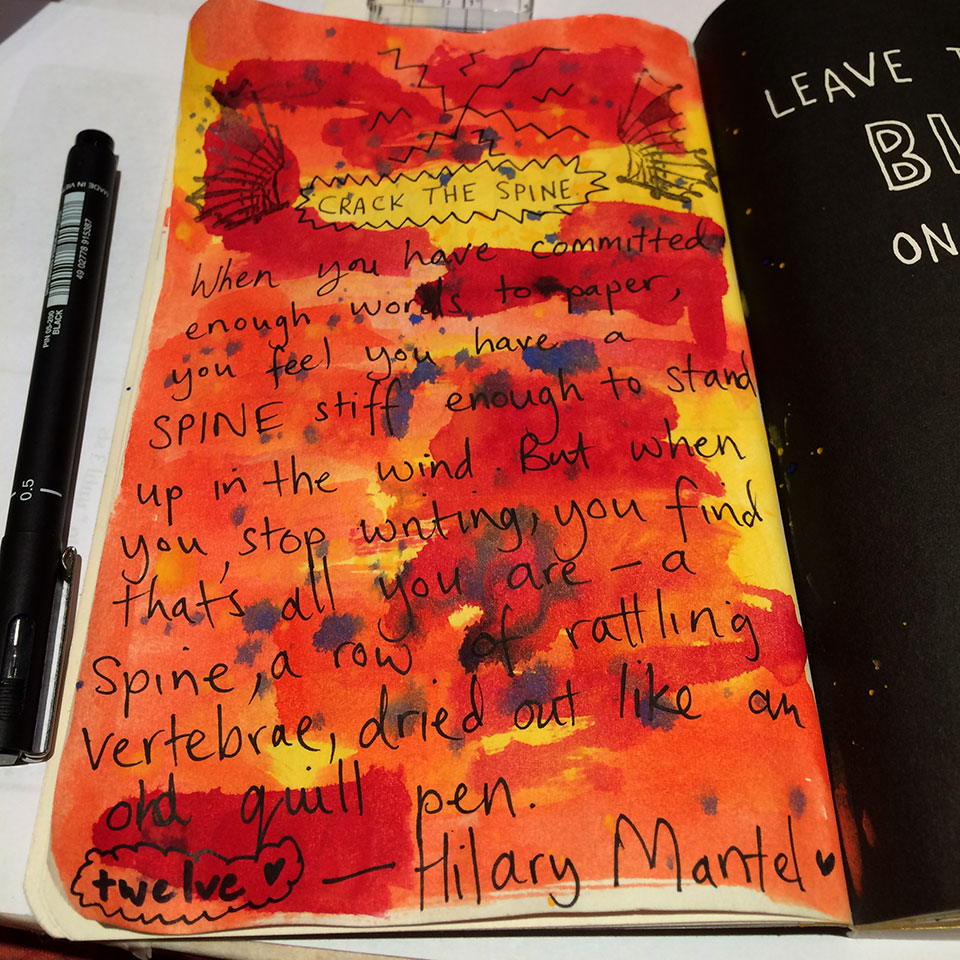 CRACK THE SPINE
When you have committed
enough words to paper,
you feel you have a
SPINE stiff enough to stand
up in the wind. But when
you stop writing, you find
that's all you are – a
spine, a row of rattling
vertebrae, dried out like an
old quill pen.
twelve
— Hilary Mantel
LEAVE
ON
MADE IN
49 02778 915387
PIN 05-200
BLACK
0.5